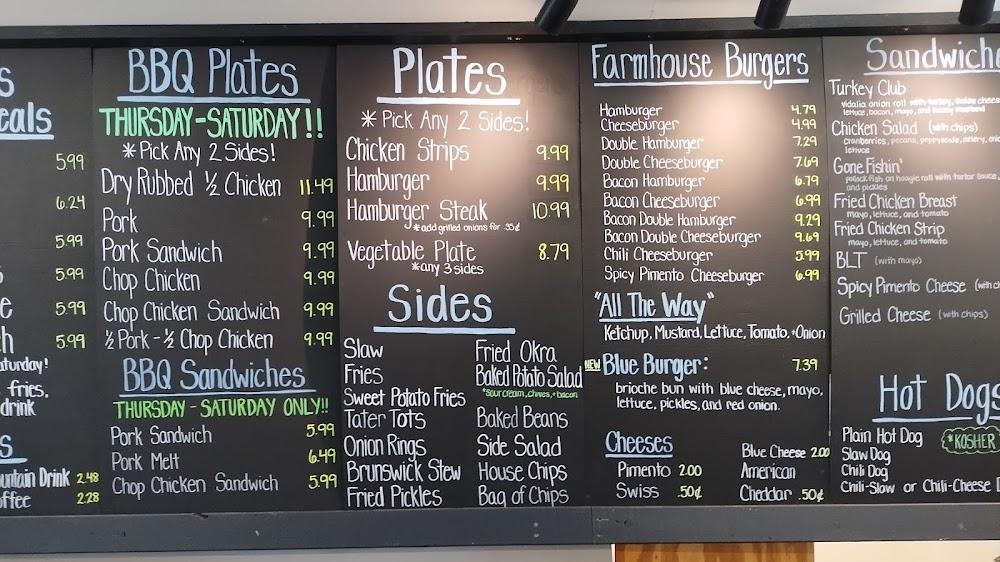 s
eals
5.99
6.24
5.99
s 5.99
e 5.99
h 5.99
aturday!
fries,
drink
s
untain Drink 2.48
offee 2.28
BBQ Plates
THURSDAY-SATURDAY!!
*Pick Any 2 Sides!
Dry Rubbed ½ Chicken 11.49
Pork 9.99
Pork Sandwich 9.99
Chop Chicken 9.99
Chop Chicken Sandwich 9.99
½ Pork - ½ Chop Chicken 9.99
BBQ Sandwiches
THURSDAY - SATURDAY ONLY!!
Pork Sandwich 5.99
Pork Melt 6.49
Chop Chicken Sandwich 5.99
Plates
*Pick Any 2 Sides!
Chicken Strips 9.99
Hamburger 9.99
Hamburger Steak 10.99
*add grilled onions for .35¢
Vegetable Plate 8.79
*any 3 sides
Sides
Slaw
Fries
Sweet Potato Fries
Tater Tots
Onion Rings
Brunswick Stew
Fried Pickles
Fried Okra
Baked Potato Salad
*sour cream, chives, + bacon
Baked Beans
Side Salad
House Chips
Bag of Chips
Farmhouse Burgers
Hamburger 4.79
Cheeseburger 4.99
Double Hamburger 7.29
Double Cheeseburger 7.69
Bacon Hamburger 6.79
Bacon Cheeseburger 6.99
Bacon Double Hamburger 9.29
Bacon Double Cheeseburger 9.69
Chili Cheeseburger 5.99
Spicy Pimento Cheeseburger 6.99
"All The Way"
Ketchup, Mustard, Lettuce, Tomato, +Onion
NEW Blue Burger: 7.39
brioche bun with blue cheese, mayo,
lettuce, pickles, and red onion.
Cheeses
Pimento 2.00
Swiss .50¢
Blue Cheese 2.00
American
Cheddar .50¢
Sandwiche
Turkey Club
vidalia onion roll with turkey, chees
lettuce, bacon, mayo, and mustard
Chicken Salad (with chips)
cranberries, pecans, poppyseeds, celery, onio
lettuce
Gone Fishin'
pollock fish on hoagie roll with tartar sauce,
and pickles
Fried Chicken Breast
mayo, lettuce, and tomato
Fried Chicken Strip
mayo, lettuce, and tomato
BLT (with mayo)
Spicy Pimento Cheese (with ch
Grilled Cheese (with chips)
Hot Dogs
Plain Hot Dog *KOSHER
Slaw Dog
Chili Dog
Chili-Slaw or Chili-Cheese